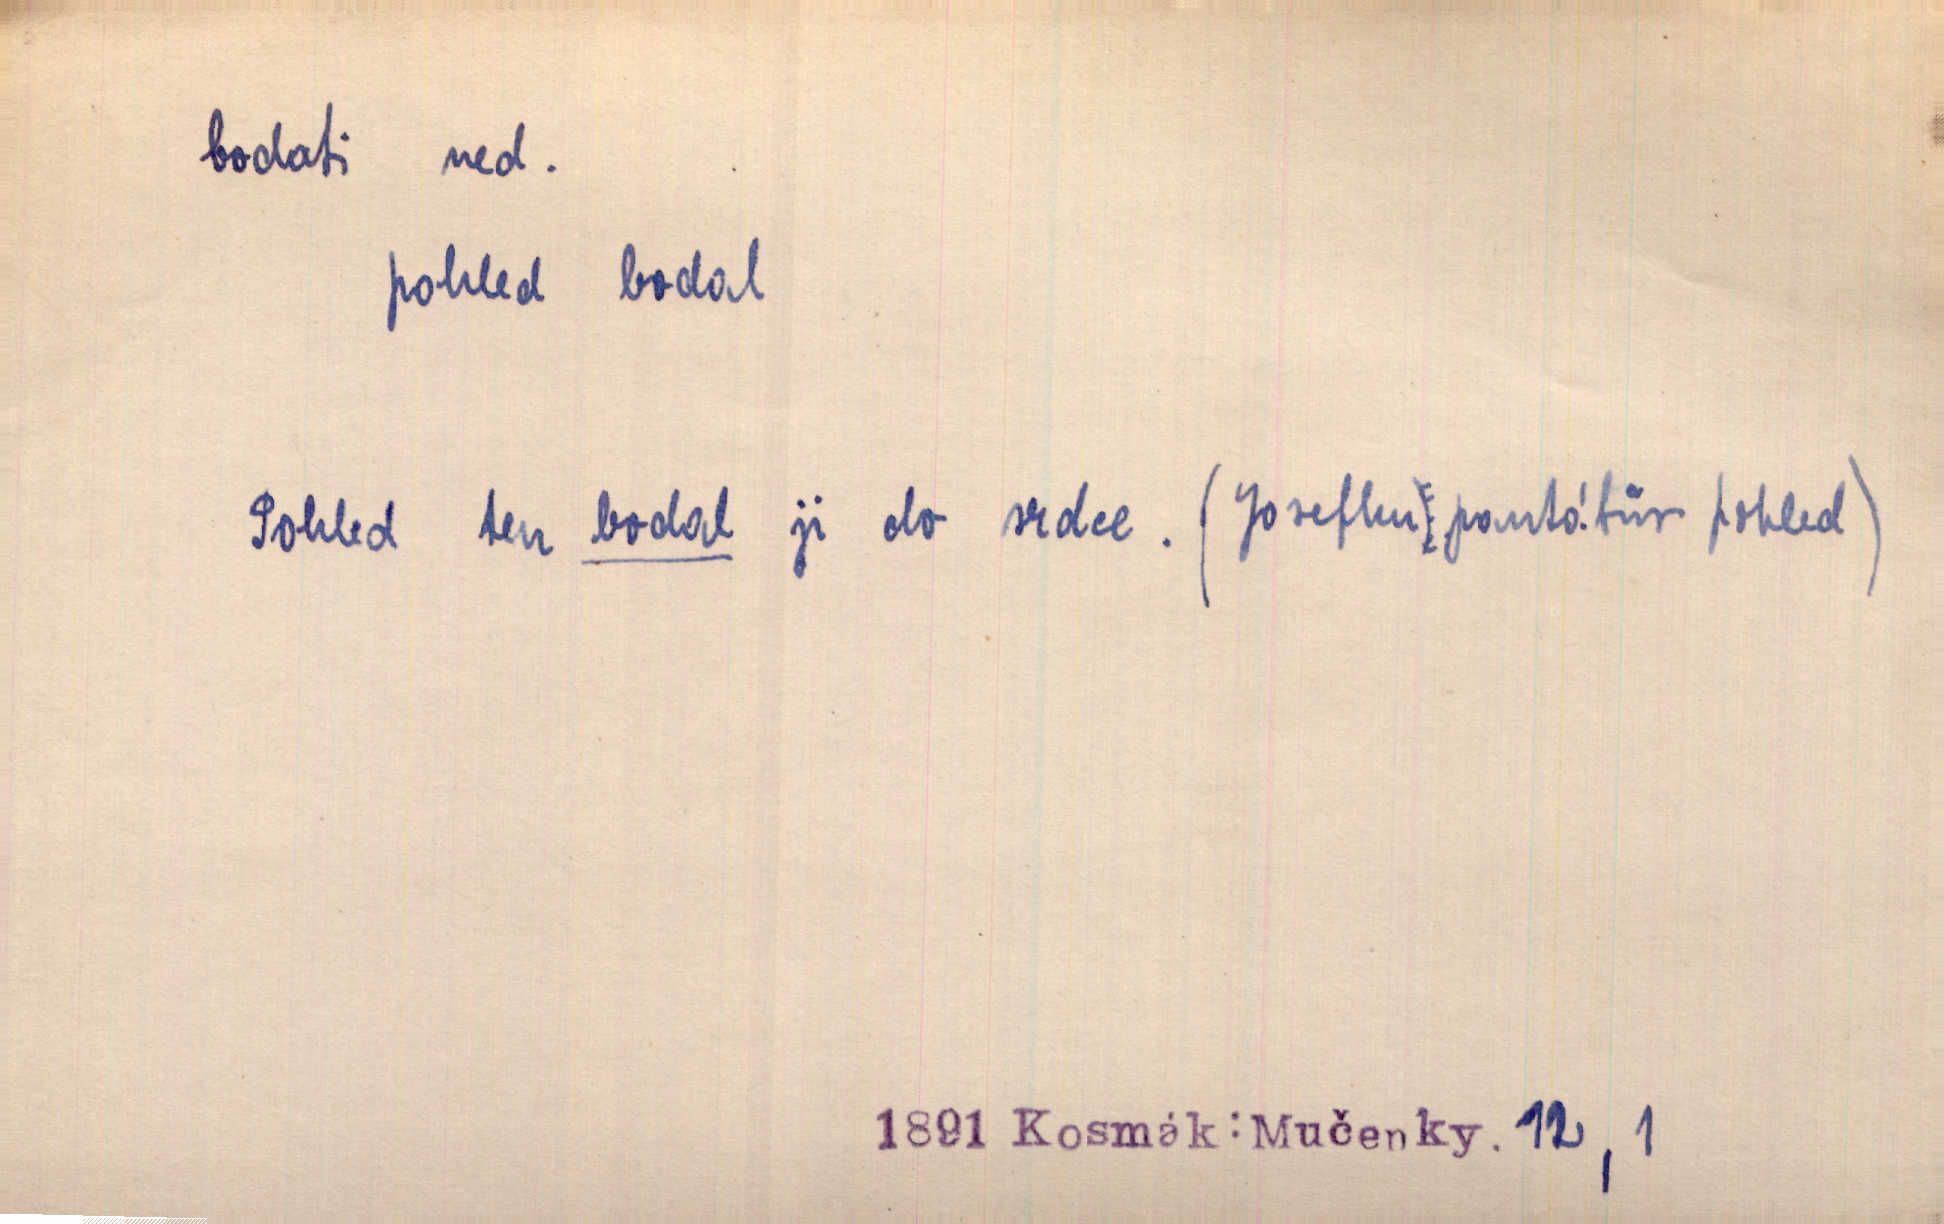 bodati ned.
pohled bodal
Pohled ten bodal ji do srdce. (Josefku pantátův pohled)
1891 Kosmák: Mučenky. 12, 1